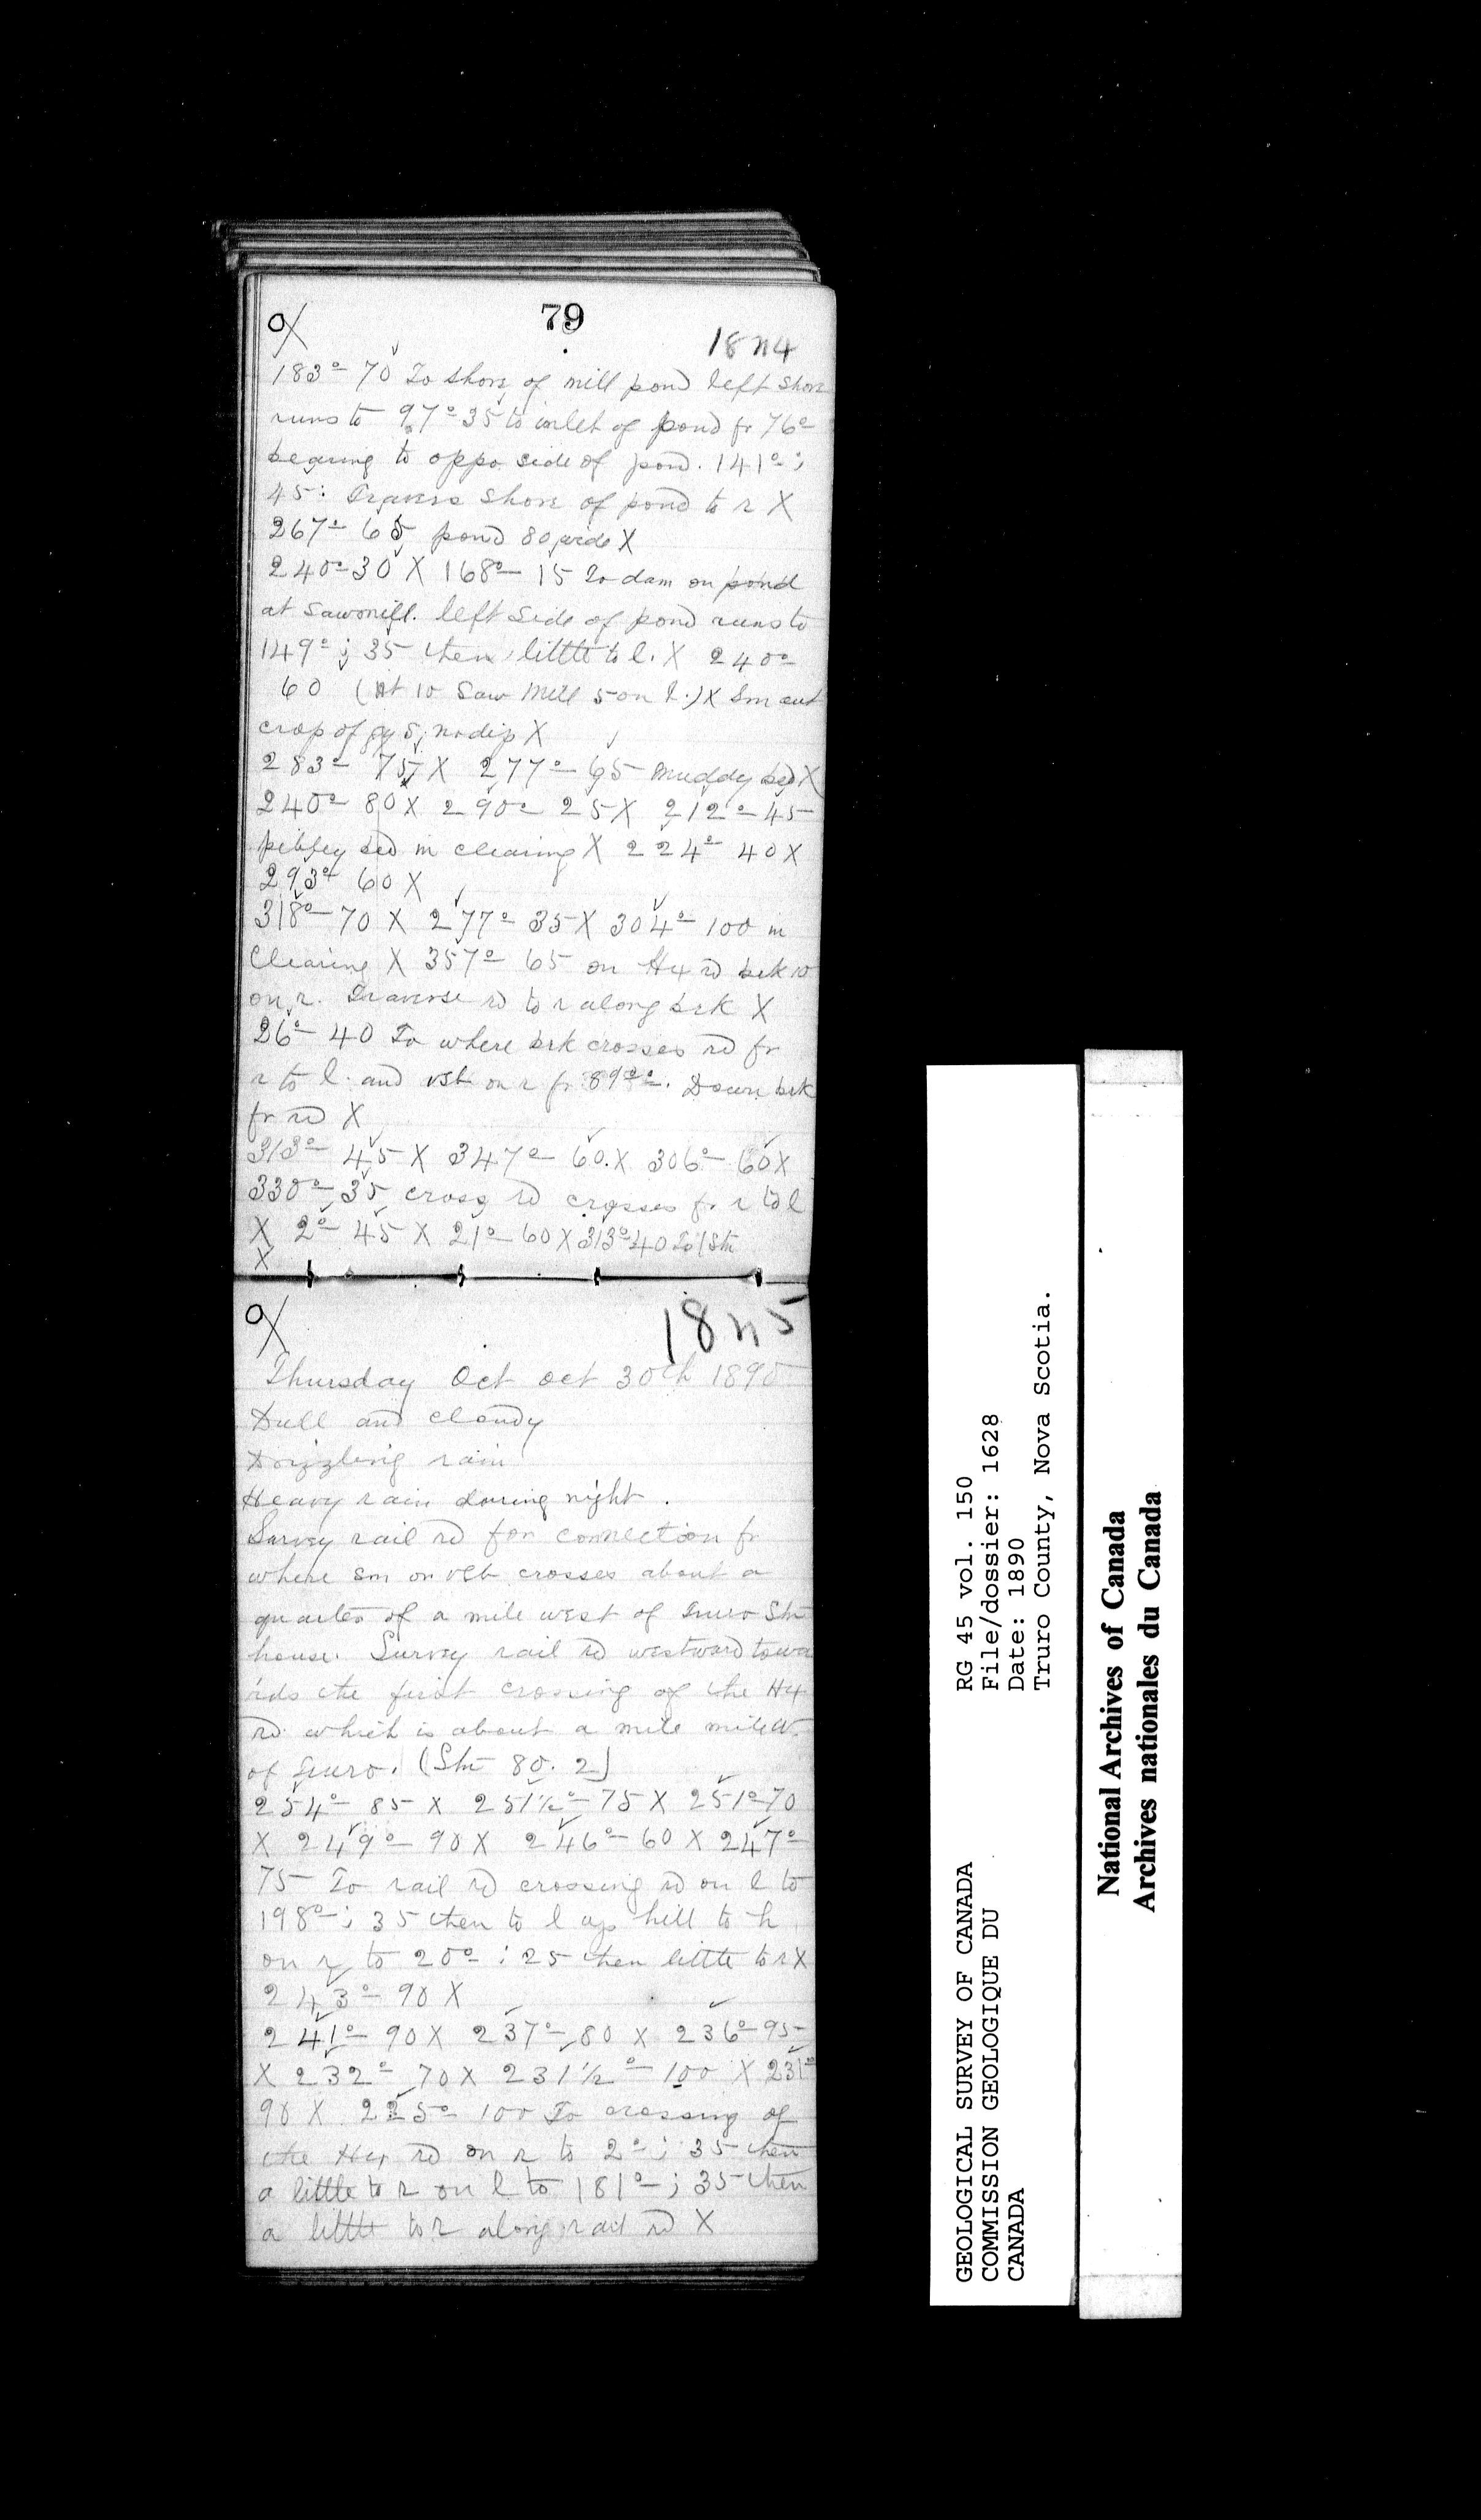 79
18 n4
183° 70 To shore of mill pond left shore
runs to 97° 35 to inlet of pond fr 76°
bearing to oppo side of pond. 141° ;
45: Traverse shore of pond to r X
267° 65 pond 80 wide X
240° 30 X 168° 15 To dam on pond
at sawmill. left side of pond runs to
149° ; 35 then little to l. X 240°
60 (At 10 Saw Mill 5 on l.) X Sm out
crop of gy S, no dip X
283° 75 X 277° 65 muddy bed X
240° 80 X 290° 25 X 212° 45
pebbly bed in clearing X 224° 40 X
293° 60 X
318° 70 X 277° 35 X 304° 100 in
Clearing X 357° 65 on Hx rd brk 10
on r. Traverse rd to r along brk X
26° 40 To where brk crosses rd fr
r to l. and vsb on r fr 89°. Down brk
fr rd X
313° 45 X 347° 60. X 306° 60 X
330° 35 cross rd crosses fr r to l
X 2° 45 X 21° 60 X 313° 40 To Stn
X
18 n5
Thursday Oct oct 30th 1890
Dull and cloudy
Drizzling rain
Heavy rain during night.
Survey rail rd for connection fr
where sm on vsb crosses about a
quarter of a mile west of Truro Stn
house. Survey rail rd westward towa
rds the first crossing of the Hx
rd which is about a mile mile W.
of Truro. (Stn 80. 2)
254° 85 X 251½° 75 X 251° 70
X 249° 90 X 246° 60 X 247°
75 To rail rd crossing rd on l to
198° ; 35 then to l up hill to h
on r to 20° ; 25 then little to r X
243° 90 X
241° 90 X 237° 80 X 236° 95
X 232° 70 X 231½° 100 X 231°
90 X 225° 100 To crossing of
the Hx rd on r to 2° ; 35 then
a little to r on l to 181° ; 35 then
a little to r along rail rd X
GEOLOGICAL SURVEY OF CANADA
COMMISSION GEOLOGIQUE DU
CANADA
RG 45 vol. 150
File/dossier: 1628
Date: 1890
Truro County, Nova Scotia.
National Archives of Canada
Archives nationales du Canada